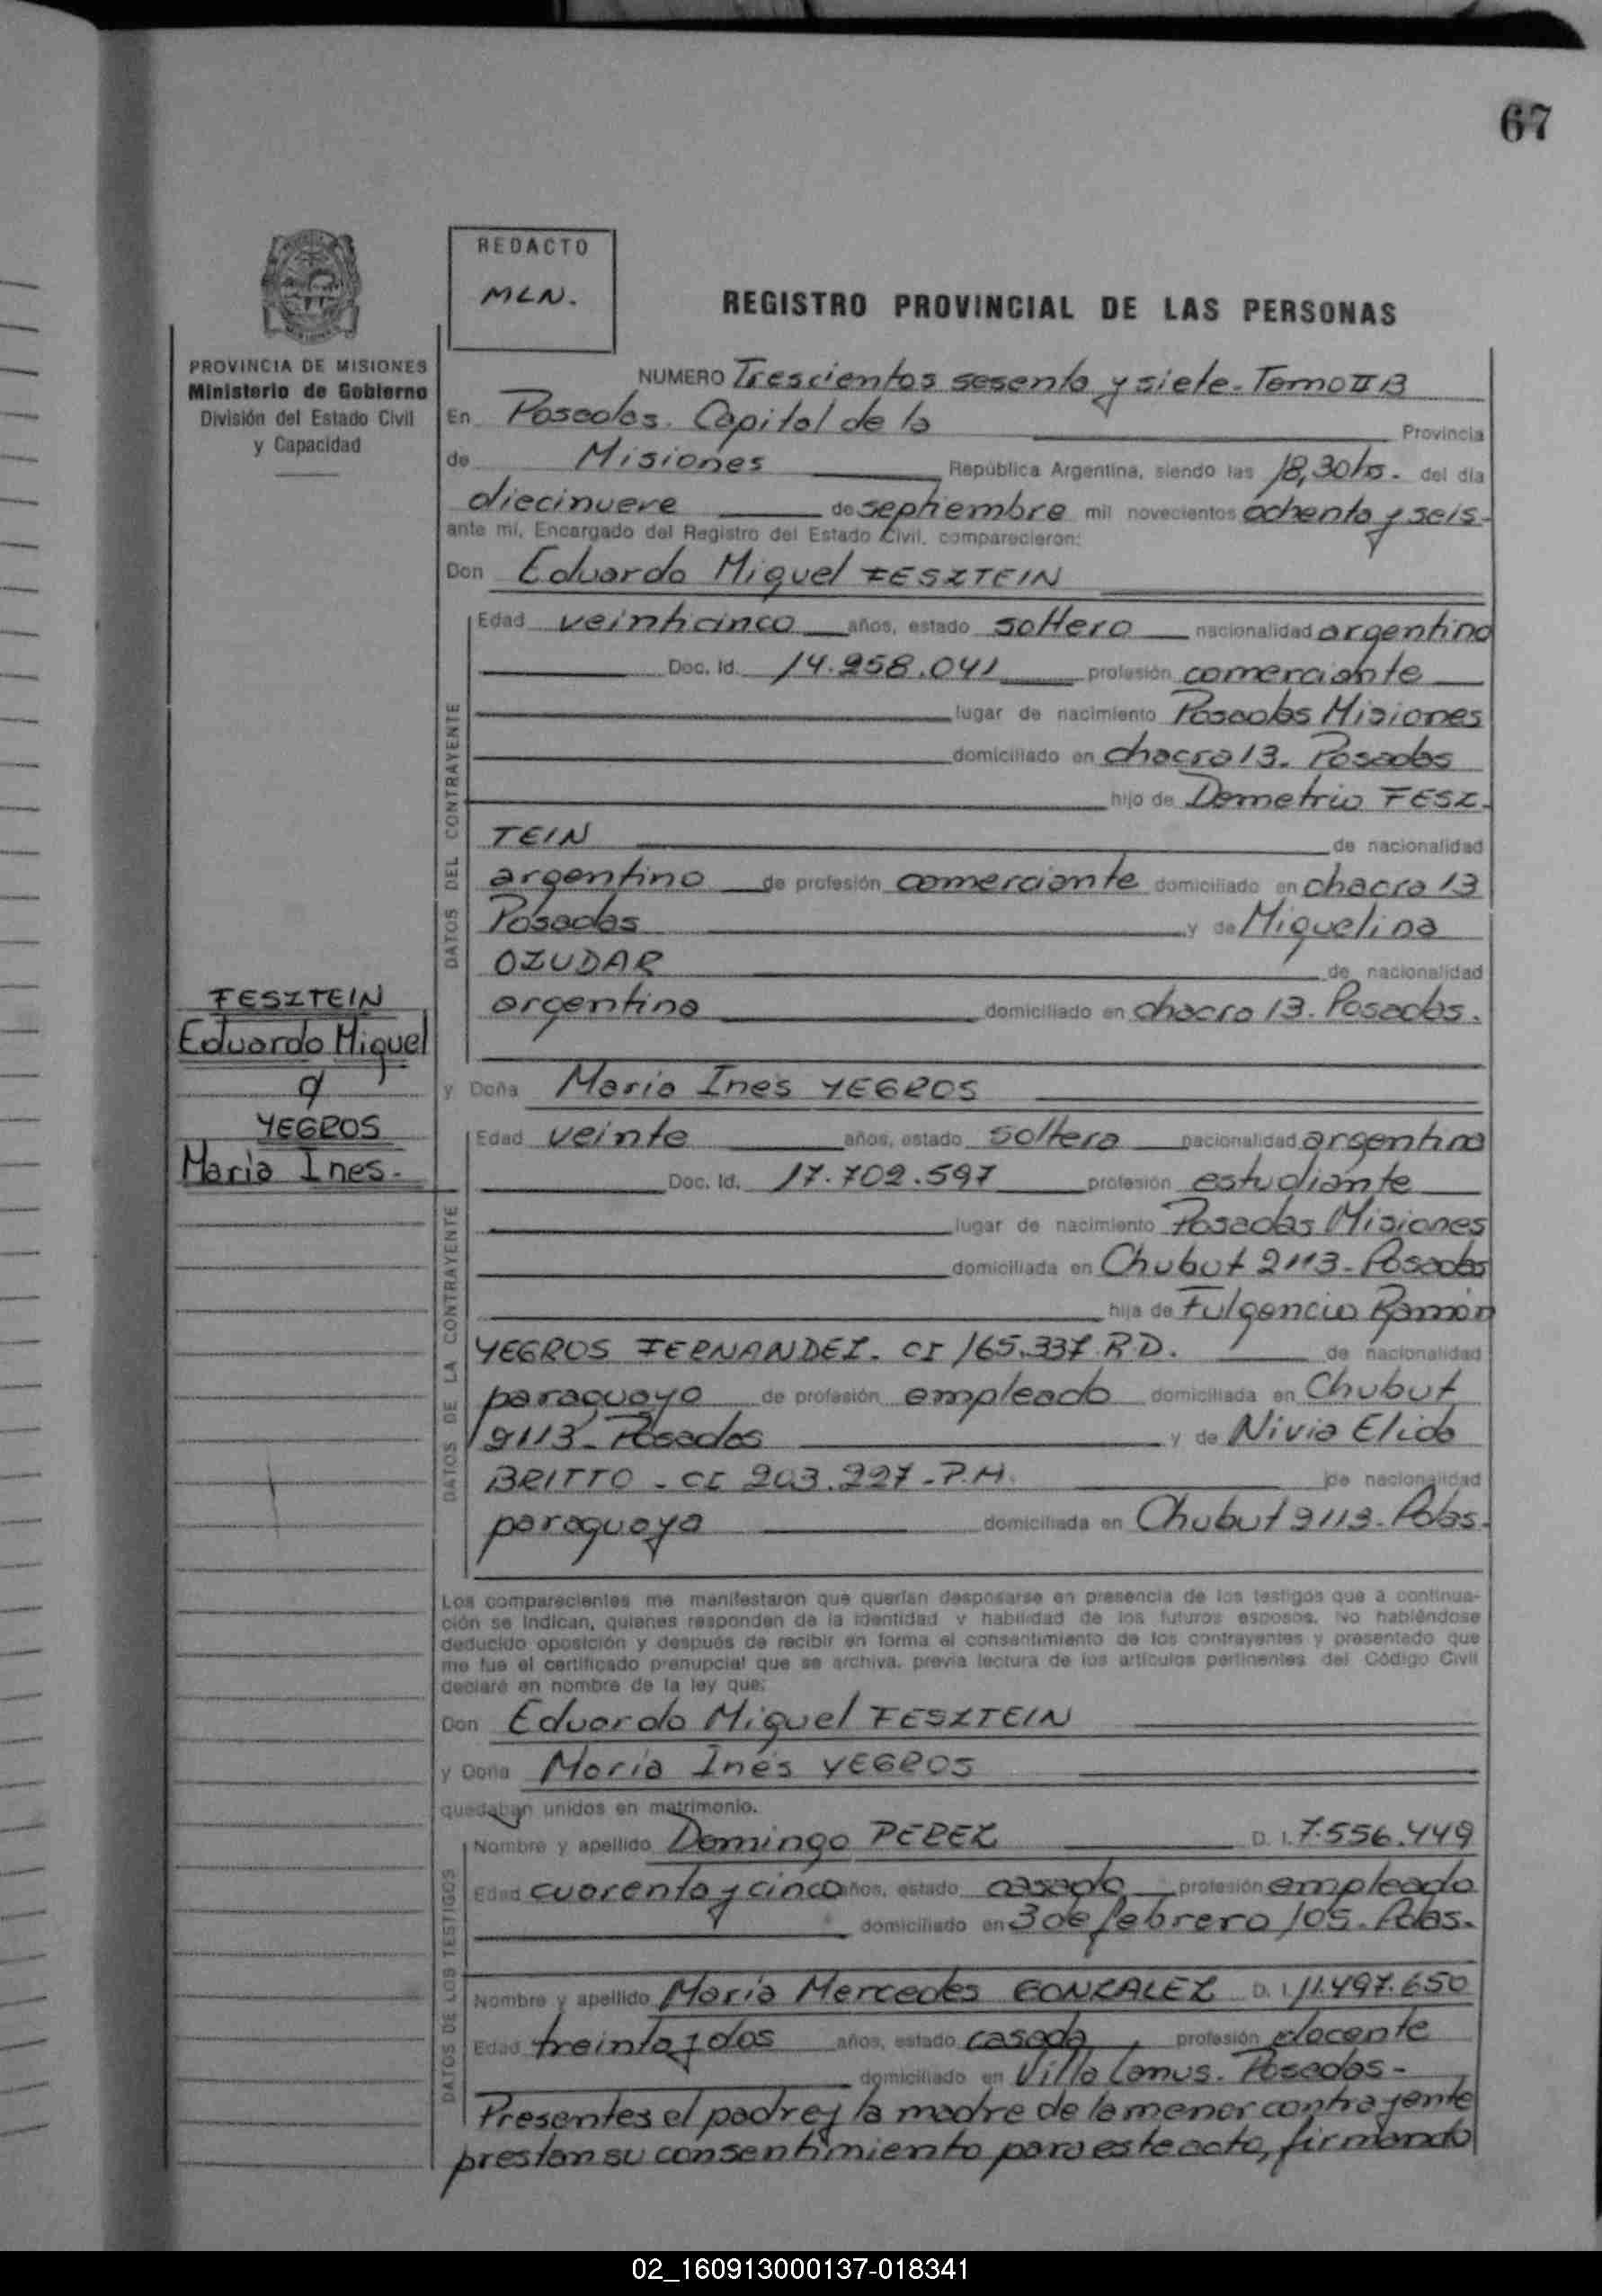 67
REDACTO
MLN.
REGISTRO PROVINCIAL DE LAS PERSONAS
PROVINCIA DE MISIONES
Ministerio de Gobierno
División del Estado Civil
y Capacidad
NUMERO Trescientos sesenta y siete - Tomo II B
En Posadas. Capital de la Provincia
de Misiones República Argentina, siendo las 18,30 hs. del día
diecinueve de septiembre mil novecientos ochenta y seis -
ante mí, Encargado del Registro del Estado Civil, comparecieron:
Don Eduardo Miguel FESZTEIN
DATOS DEL CONTRAYENTE
Edad veinticinco años, estado soltero nacionalidad argentino
Doc. Id. 14.958.041 profesión comerciante
lugar de nacimiento Posadas Misiones
domiciliado en chacra 13. Posadas
hijo de Demetrio FESZ-
TEIN de nacionalidad
argentino de profesión comerciante domiciliado en chacra 13
Posadas y de Miguelina
OZUDAR de nacionalidad
argentina domiciliado en chacra 13. Posadas.
FESZTEIN
Eduardo Miguel
q
YEGROS
Maria Ines -
y Doña Maria Ines YEGROS
DATOS DE LA CONTRAYENTE
Edad veinte años, estado soltera nacionalidad argentina
Doc. Id. 17.702.597 profesión estudiante
lugar de nacimiento Posadas Misiones
domiciliada en Chubut 2113 - Posadas
hija de Fulgencio Ramón
YEGROS FERNANDEZ - CI 165.337 R.D. de nacionalidad
paraguayo de profesión empleado domiciliada en Chubut
2113 - Posadas y de Nivia Elida
BRITTO - CI 203.227 - P.M. de nacionalidad
paraguaya domiciliada en Chubut 2113 - Pdas.
Los comparecientes me manifestaron que querían desposarse en presencia de los testigos que a continua-
ción se indican, quienes responden de la identidad y habilidad de los futuros esposos. No habiéndose
deducido oposición y después de recibir en forma el consentimiento de los contrayentes y presentado que
me fue el certificado prenupcial que se archiva, previa lectura de los artículos pertinentes del Código Civil
declaré en nombre de la ley que:
Don Eduardo Miguel FESZTEIN
y Doña Maria Inés YEGROS
quedaban unidos en matrimonio.
DATOS DE LOS TESTIGOS
Nombre y apellido Domingo PEREZ D. I. 7.556.449
Edad cuarenta y cinco años, estado casado profesión empleado
domiciliado en 3 de febrero 105. Pdas.
Nombre y apellido Maria Mercedes GONZALEZ D. I. 11.497.650
Edad treinta y dos años, estado casada profesión docente
domiciliado en Villa Lanus. Posadas -
Presentes el padre y la madre de la menor contrayente
prestan su consentimiento para este acto, firmando
02_160913000137-018341